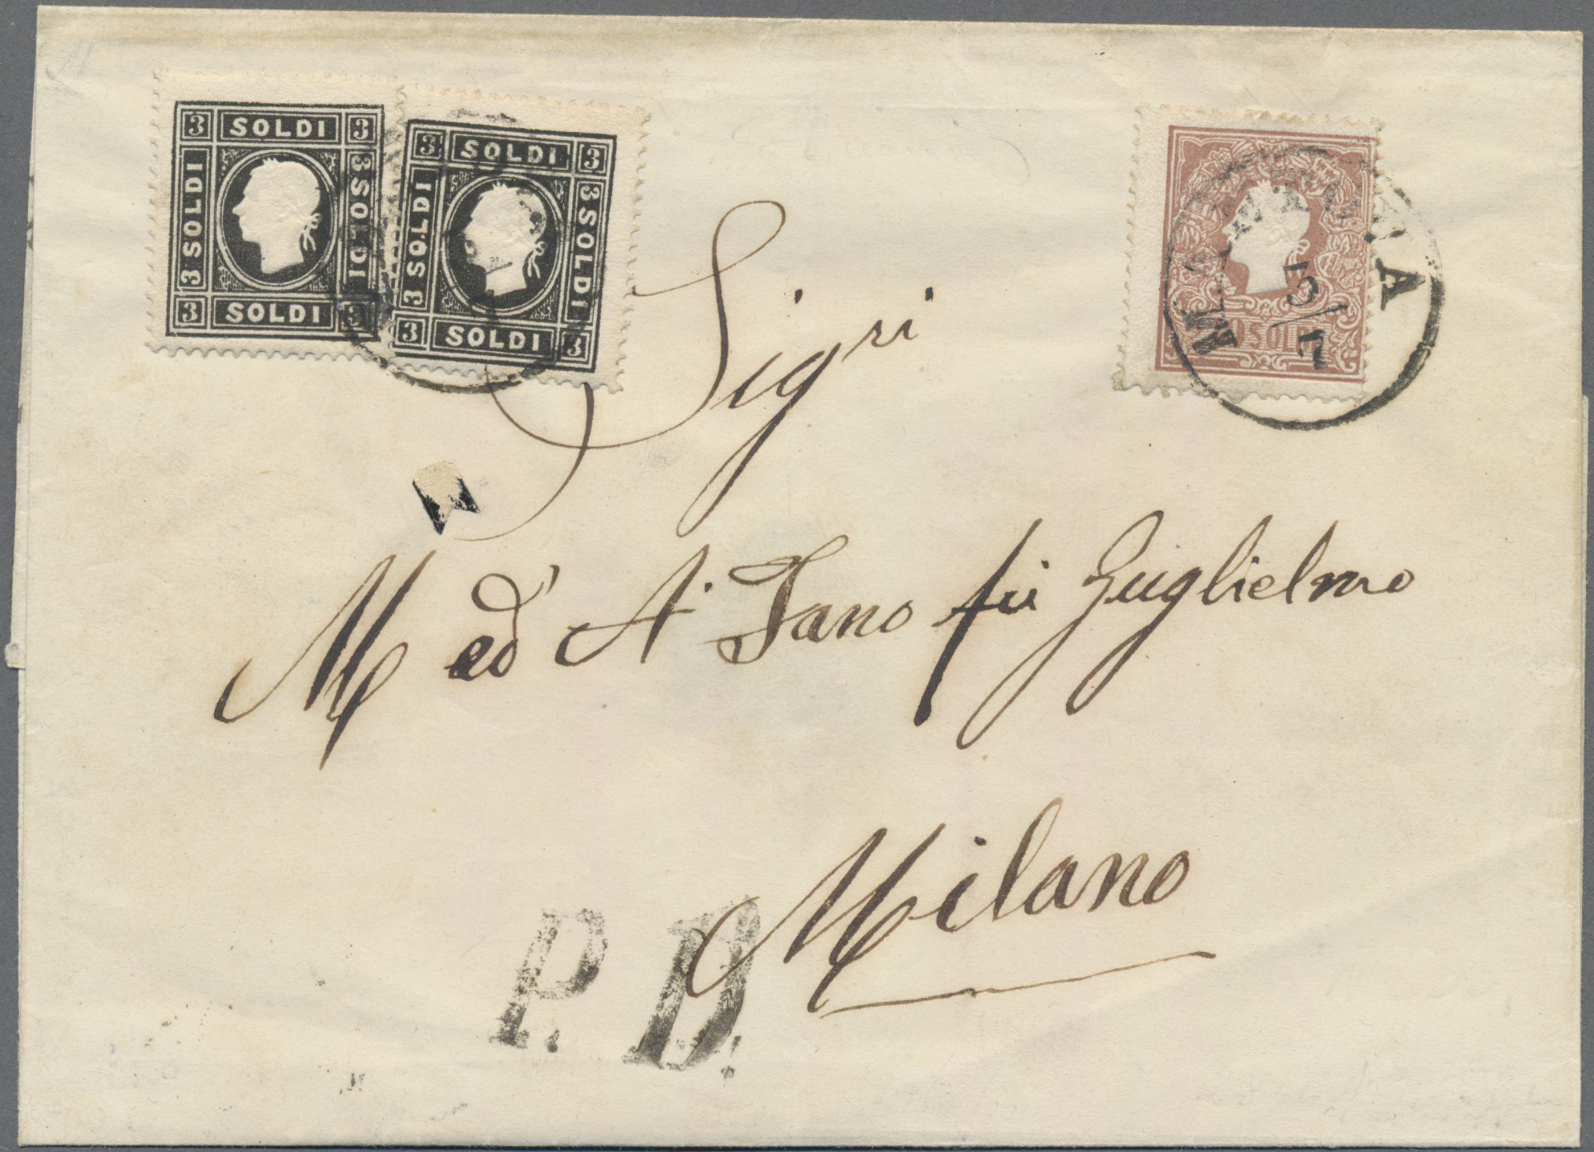 3 SOLDI 3
3 SOLDI
3 SOLDI
3 SOLDI 3
3 SOLDI 3
3 SOLDI
3 SOLDI
3 SOLDI 3
MANTOVA
5/7
10 SOLDI
Sigri
M ed A' Fano fu Guglielmo
Milano
P. D.